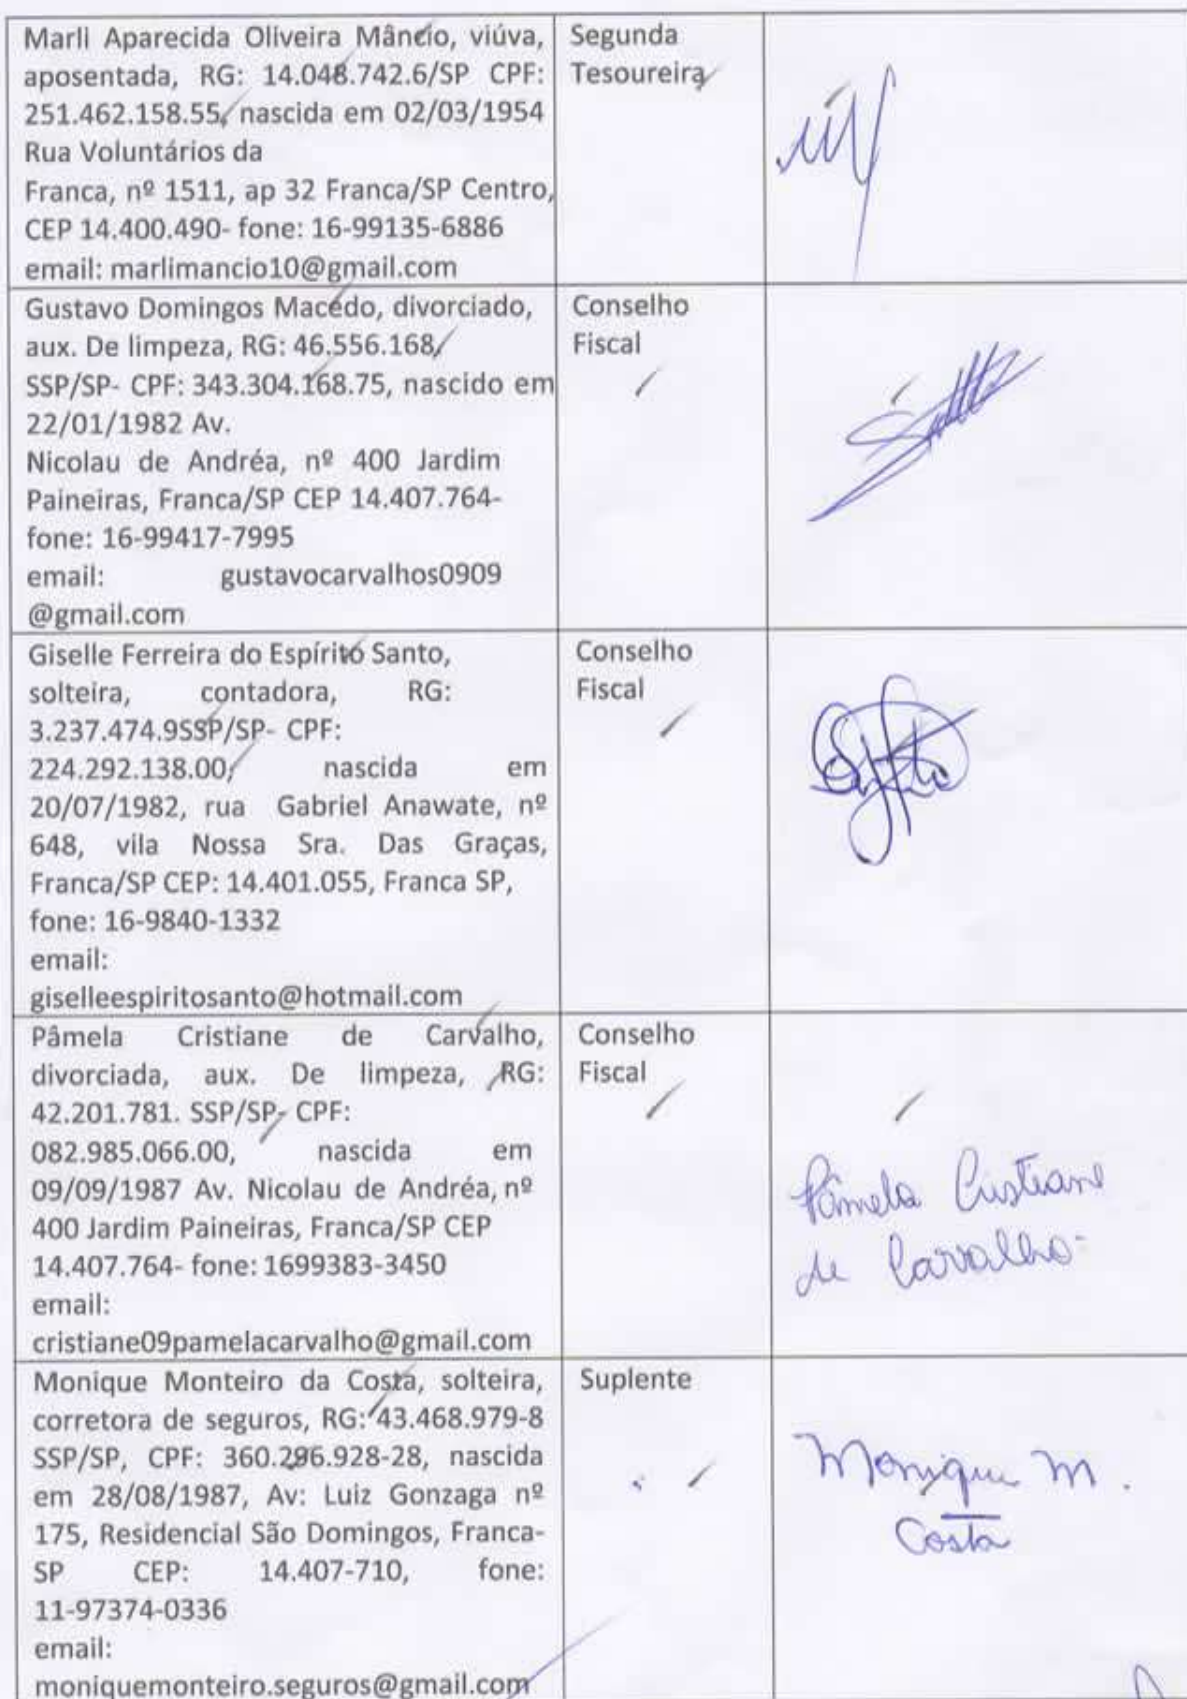 Marli Aparecida Oliveira Mâncio, viúva,
aposentada, RG: 14.048.742.6/SP CPF:
251.462.158.55, nascida em 02/03/1954
Rua Voluntários da
Franca, nº 1511, ap 32 Franca/SP Centro,
CEP 14.400.490- fone: 16-99135-6886
email: marlimancio10@gmail.com
Segunda
Tesoureira
Gustavo Domingos Macedo, divorciado,
aux. De limpeza, RG: 46.556.168,
SSP/SP- CPF: 343.304.168.75, nascido em
22/01/1982 Av.
Nicolau de Andréa, nº 400 Jardim
Paineiras, Franca/SP CEP 14.407.764-
fone: 16-99417-7995
email: gustavocarvalhos0909
@gmail.com
Conselho
Fiscal
Giselle Ferreira do Espírito Santo,
solteira, contadora, RG:
3.237.474.9SSP/SP- CPF:
224.292.138.00, nascida em
20/07/1982, rua Gabriel Anawate, nº
648, vila Nossa Sra. Das Graças,
Franca/SP CEP: 14.401.055, Franca SP,
fone: 16-9840-1332
email:
giselleespiritosanto@hotmail.com
Conselho
Fiscal
Pâmela Cristiane de Carvalho,
divorciada, aux. De limpeza, RG:
42.201.781. SSP/SP- CPF:
082.985.066.00, nascida em
09/09/1987 Av. Nicolau de Andréa, nº
400 Jardim Paineiras, Franca/SP CEP
14.407.764- fone: 1699383-3450
email:
cristiane09pamelacarvalho@gmail.com
Conselho
Fiscal
Pâmela Cristiane
de Carvalho
Monique Monteiro da Costa, solteira,
corretora de seguros, RG: 43.468.979-8
SSP/SP, CPF: 360.296.928-28, nascida
em 28/08/1987, Av: Luiz Gonzaga nº
175, Residencial São Domingos, Franca-
SP CEP: 14.407-710, fone:
11-97374-0336
email:
moniquemonteiro.seguros@gmail.com
Suplente
Monique M.
Costa